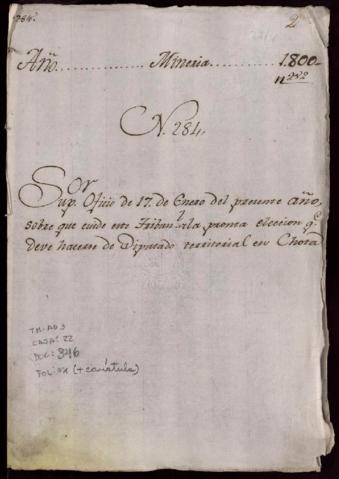 284.
2
Añ. Mineria 1.800
nº 282
N. 284.
Sor
Sup. Oficio de 17. de Enero del presente año,
sobre que cuide este Tribunl. la pronta eleccion qe.
deve hacerse de Diputado territorial en Chota
TM-AD 3
CAJA: 22
DOC: 346
FOL: 04 (+ carátula)